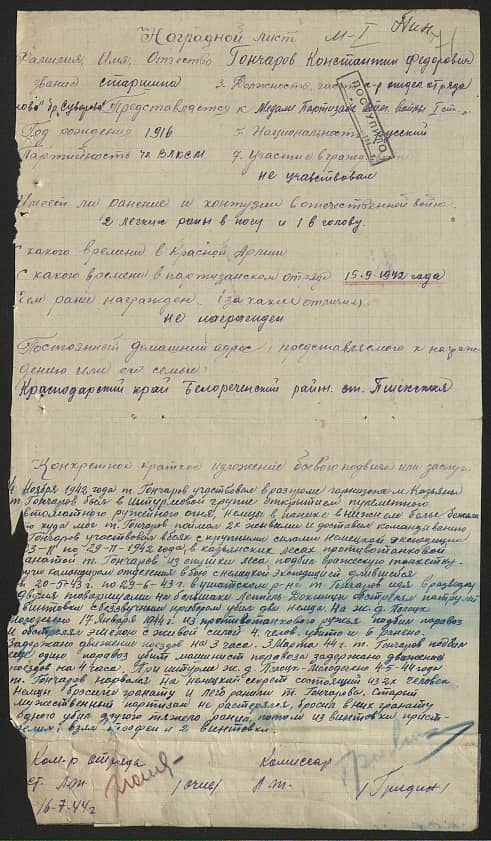 Наградной лист М-I
Фамилия, Имя, Отчество Гончаров Константин Федорович
звание старшина 3. Должность, часть к-р отдел. отряда
"гр. Суворова" Представляется к Медали Партизану отеч. войны I ст.
ПОСТУПИЛО
Год рождения 1916 5. Национальность русский
Партийность чл ВЛКСМ 7. Участие в граждан
не участвовал
Имеет ли ранение и контузии в отечественной войне.
2 легких раны в ногу и 1 в голову.
С какого времени в Красной Армии
С какого времени в партизанском отряде 15-9-1942 года
Чем ранее награжден. (за какие отличия)
не награжден
Постоянный домашний адрес: представляемого к награж-
дению или его семьи:
Краснодарский край Белореченский район. ст. Пшехская
Конкретное краткое изложение боевого подвига или заслуг.
4 Ноября 1942 года т. Гончаров участвовал в разгроме гарнизона м. Козяны
т. Гончаров был в штурмовой группе открытием пулеметного
автоматно ружейного огня, немцы в панике в нижнем белье бежали
кто куда мог т. Гончаров поймал 2х живыми и доставил командованию
т. Гончаров участвовал в боях с крупными силами немецкой экспедиции
23-11 по 29-11-1942 года, в казянских лесах противотанковой
гранатой т. Гончаров из опушки леса подбил вражескую танкетку.
командиром отделения в бою с немецкой экспедицией длившийся
с 20-5-43 г. по 29-6-43 г. в ушатском р-не т. Гончаров идя в разведку
с двумя товарищами на большаке Лепель Докшицы обстрелял патруль
из винтовки с безззвучным прибором убил два немца. На ж. д. Полоцк
Молодечно 17 Января 1944 г. из противотанкового ружья подбил паровоз
и обстрелял эшелон с живой силой 4 чел. убито и 6 ранено.
Задержано движение поездов на 3 часа. 3 Марта 44 г. т. Гончаров подбил
еще один паровоз убит машинист паровоза задержано движение
поездов на 4 часа. При штурме ж. д. Полоцк-Молодечно 4-4-44 года
т. Гончаров нарвался на немецкий секрет состоящий из 2х человек
немцы бросили гранату и легко ранили т. Гончарова. Старый
мужественный партизан не растерялся, бросил в них гранату
одного убил другого тяжело ранил, потом из винтовки прист-
релил, взял трофеи и 2 винтовки.
Ком-р отряда Комиссар
ст. Л-т Л-т.
16-7-44 г.